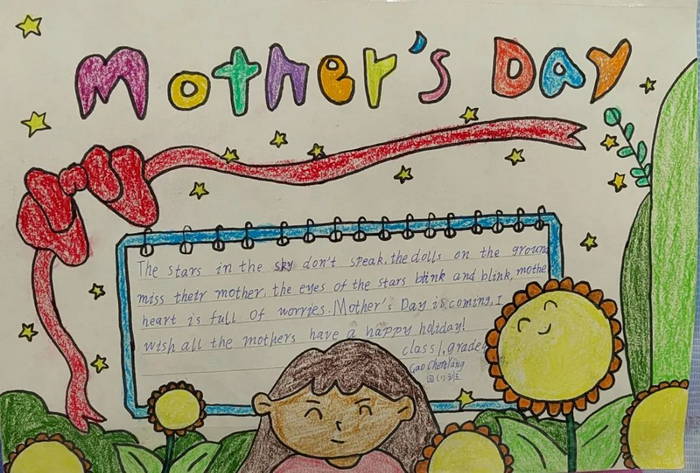 Mother's Day
The stars in the sky don't speak, the dolls on the ground
miss their mother, the eyes of the stars blink and blink, mothe
heart is full of worries. Mother's Day is coming, I
wish all the mothers have a happy holiday!
class 1, grade
Gao